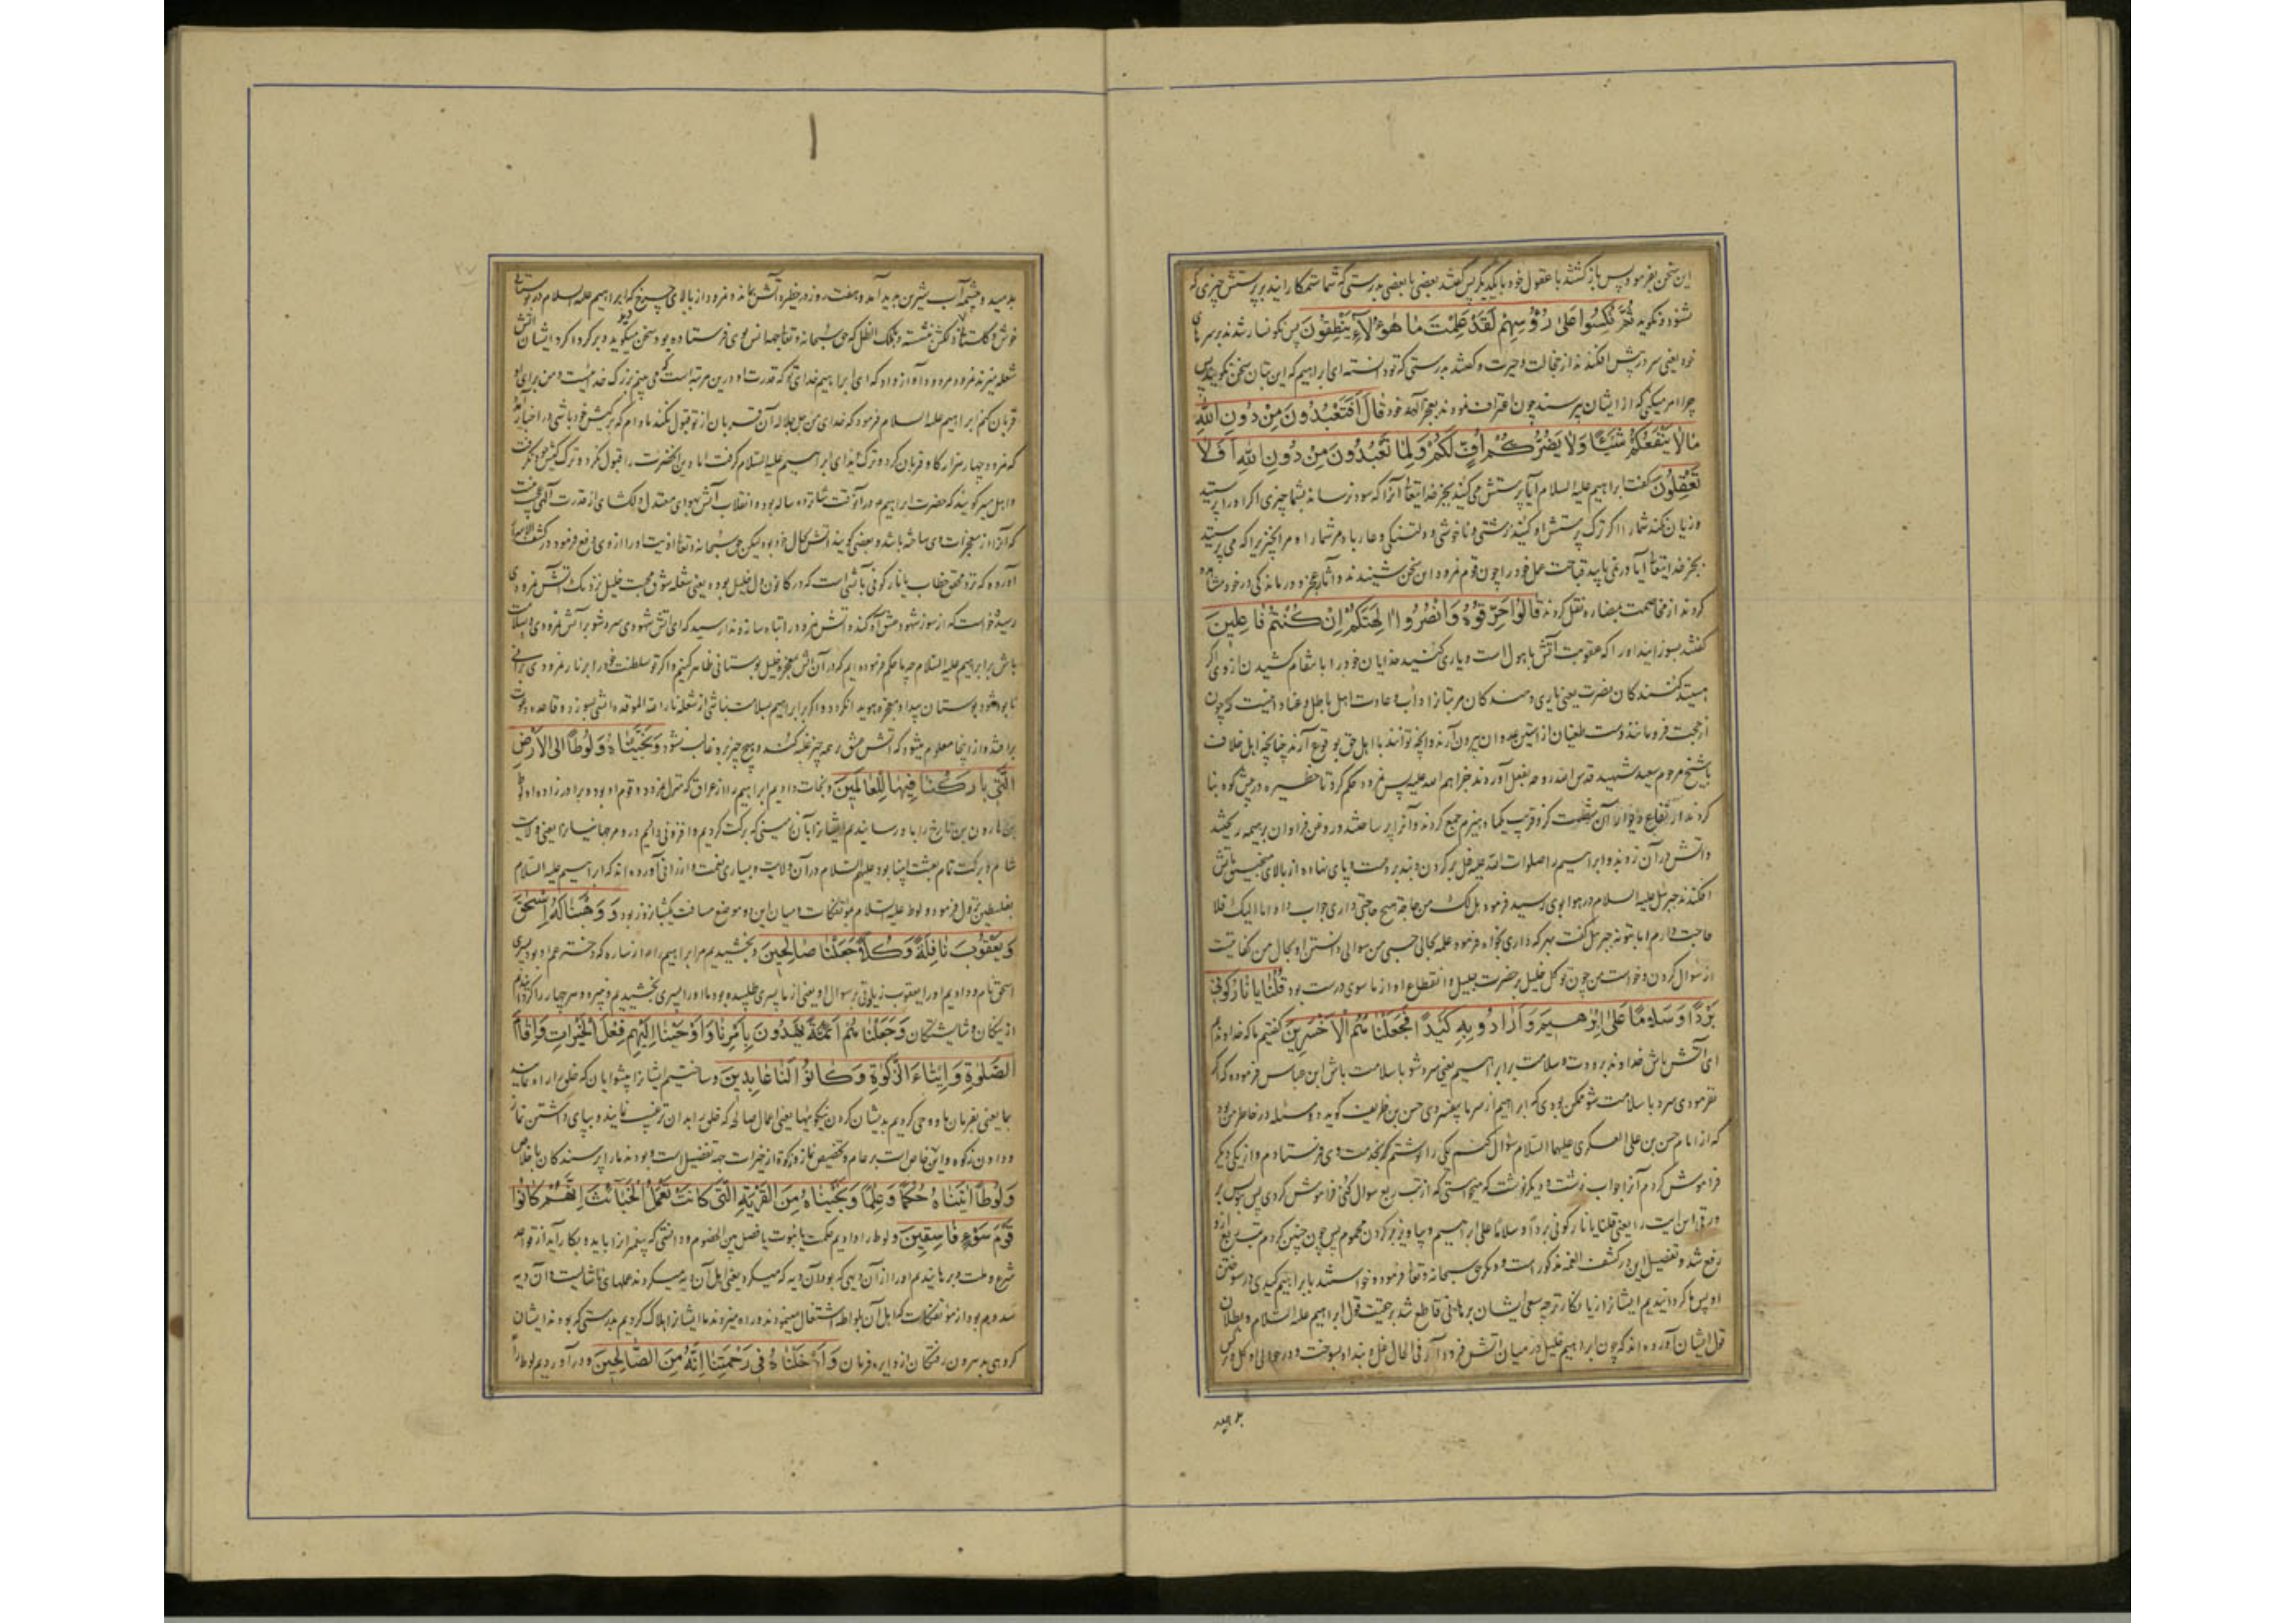 این سخن بفرمود پس باز کشتند با عقول خود با یکدیگر پس گفتند بعضی با بعضی بدرستی که شما ستمکارانید بر پرستش چیزی که
شنود و نکوید ثُمَّ نُكِسُوا عَلىٰ رُؤُسِهِمْ لَقَدْ عَلِمْتَ ما هٰؤُلآءِ يَنْطِقُونَ پس نکونسار شدند بر سرهای
خود یعنی سر در پیش افکندند از خجالت و حیرت و کفتند بدرستی که تو دانسته ای ابراهیم که این بتان سخن نکویند پس
چرا امر میکنی که از ایشان پرسند چون اعتراف نمودند بعجز آلهه خود قالَ اَفَتَعْبُدُونَ مِنْ دُونِ اللهِ
مَالا يَنْفَعُكُمْ شَيْئًا وَلا يَضُرُّكُمْ اُفٍّ لَكُمْ وَلِمَا تَعْبُدُونَ مِنْ دُونِ اللهِ اَفَلا
تَعْقِلُونَ کفت ابراهیم علیه السلام آیا پرستش می کنید بجز خدایتعا آنرا که سود نرساند بشما چیزی اکر او را پرستید
و زیان نکند شما را اکر ترک پرستش او کنید زشتی و ناخوشی و دلتنکی و عار باد مر شما را و مر انچیز را که می پرستید
بجز خدایتعا آیا در نمی یابید قباحت عمل خود را چون قوم نمرود این سخن شنیدند و آثار عجز و درماندکی در خود مشاهده
کردند از مخاصمت بمضاره نقل کردند قالُوا حَرِّقُوهُ وَانْصُرُوا اٰلِهَتَكُمْ اِنْ كُنْتُمْ فَاعِلِينَ
کفتند بسوزانید او را که عقوبت آتش با هول است و یاری کنید خدایان خود را بانتقام کشیدن از وی اکر
هستید کنندکان نصرت یعنی یاری دهندکان مر بتانرا و اب و عادت اهل باطل و عناد اینست که چون
از حجت فرو مانند دست طغیان از استین عدوان بیرون آرند و انچه توانند با اهل حق بوقوع آرند چنانچه اهل خلاف
با شیخ مرحوم سعید شهید قدس الله روحه بفعل آوردند خزاهم الله علیه پس نمرود حکم کرد تا حظیره در پیش کوه بنا
کردند و ارتفاع دیوار آن شصت کز و قریب یکماه هیزم جمع کردند و آنرا پر ساختند و روغن فراوان بر همه ریختند
و اتش در آن زدند و ابراهیم را صلوات الله علیه غل بر کردن و بند بر دست و پای نهاده از بالای منجنیق باتش
افکندند جبرئیل علیه السلام در هوا بوی رسید فرمود هل لک من حاجة هیچ حاجتی داری جواب داد اما الیک فلا
حاجت دارم اما بتو نه جبرئیل گفت بهر که داری بخواه فرمود علمه بحالی حسبی من سوالی دانستن او بحال من کفایتست
از سوال کردن و خواستن من چون توکل خلیل بر حضرت جلیل و انقطاع او از ما سوی درست بود قُلْنَا يَا نَارُ كُونِي
بَرْدًا وَسَلَامًا عَلىٰ اِبْرٰهِيمَ وَاَرَادُوا بِهِ كَيْدًا فَجَعَلْنَاهُمُ الْاَخْسَرِينَ کفتیم ما که خداوندیم
ای آتش باش خداوند برودت و سلامت بر ابراهیم یعنی سرد شو با سلامت باش ابن عباس فرموده که اکر
نفرمودی سرد با سلامت شو ممکن بودی که ابراهیم از سرما بیفسردی حسن بن ظریف کوید دو مسئله در خاطر من بود
که از امام حسن بن علی العسکری علیهما السلام سؤال کنم یکی را نوشتم که بخدمت وی فرستادم و از یکی دیکر
فراموش کردم آنرا جواب نوشت و دیکر نوشت که میخواستی که از تب ربع سوال کنی فراموش کردی پس بنویس بر
ورقی این ایت را یعنی قلنا یا نار کونی بردا و سلاما علی ابراهیم و بیاویز بر کردن محموم پس چون چنین کردم تب ربع از او
رفع شد و تفصیل این در کشف الغمه مذکور است و دیکر حق سبحانه و تعا فرمود و خواستند بابراهیم کیدی در سوختن
او پس ما کردانیدیم ایشانرا زیانکارتر چه سعی ایشان برهانی قاطع شد بر حقیت قول ابراهیم علیه السلام و بطلان
قول ایشان آورده اند که چون ابراهیم خلیل در میان اتش فرود آمد فی الحال غل و بند او بسوخت و در حوالی او کل و نرکس
بدمید
بدمید و چشمه آب شیرین پدید آمد و هفت روز در حظیره آتش بماند و نمرود از بالای چرخ که ابراهیم علیه السلام در بوستانی
خوش و کلستان دلکش نشسته و ملک الظل که حق سبحانه و تعا بجهة انس وی فرستاده بود سخن میکوید و بر کرداکرد ایشان آتش
شعله میزند نمرود مردود آواز داد که ای ابراهیم خدای تو که قدرت او درین مرتبه است که می بینم بزرک خدائیست و من برای او
قربان کنم ابراهیم علیه السلام فرمود که خدای من جل جلاله آن قربان از تو قبول نکند مادام که بر کیش خود باشی در اخبار آمده
که نمرود چهار هزار کاو قربان کرد و ترک ایذای ابراهیم علیه السلام کرفت اما دین آنحضرت را قبول نکرد و ترک کیش خود نکرفت
و اهل سیر کویند که حضرت ابراهیم در آنوقت شانزده ساله بود و انقلاب آتش بهوای معتدل دلکشای از قدرت الهی عجب نیست
که آنرا از معجزات وی ساخته باشد و بعضی کویند اتش بحال خود بود لیکن حق سبحانه و تعا اذیت او را از وی دفع فرمود در کشف الاسرار
آورده که نزد محقق خطاب یا نار کونی با آتشی است که در کانون دل خلیل بوده یعنی شعله شوق محبت خلیل نزدیک آتش نمرودی
رسید خواست که از سوز شهود عشق آکنده اتش نمرود را تباه سازد ندا رسید که ای آتش شهودی سرد شو بر آتش نمرودی و بسلامت
باش بر ابراهیم علیه السلام چه ما حکم فرموده ایم که در آن آتش معجزه خلیل بوستانی ظاهر کنیم و اکر تو سلطنت خود را بر نار نمرودی برانی
نابود شود و بوستان پیدا و معجزه هویدا نکردد
برافتد و از اینجا معلوم میشود که آتش عشق بر همه چیز غلبه کند و هیچ چیز برو غالب نشود وَنَجَّيْنَاهُ وَلُوطًا اِلَى الْاَرْضِ
الَّتِي بَارَكْنَا فِيهَا لِلْعَالَمِينَ و نجات دادیم ابراهیم را از عراق که منزل نمرود و قوم او بود و برادرزاده او لوط
بن هاران بن تارخ را با و رسانیدیم ایشانرا بآن زمینی که برکت کردیم و افزونی دادیم در و مر جهانیانرا یعنی ولایت
شام و برکت تمام بعثت انبیا بود علیهم السلام در آن ولایت و بسیاری نعمت و ارزانی آورده اند که ابراهیم علیه السلام
بفلسطین نزول فرمود و لوط علیه السلام بمؤتفکات و میان این دو موضع مسافت یکشبانروز بود وَوَهَبْنَا لَهُ اِسْحٰقَ
وَيَعْقُوبَ نَافِلَةً وَكُلًّا جَعَلْنَا صَالِحِينَ و بخشیدیم مر ابراهیم را از ساره که دختر عم او بود پسری
اسحق نام و دادیم او را یعقوب زیادتی بر سوال او یعنی از ما پسری طلبیده بود ما او را پسری بخشیدیم و نبیره و هر چهار را کردانیدیم
از نیکان و شایستکان وَجَعَلْنَاهُمْ اَئِمَّةً يَهْدُونَ بِاَمْرِنَا وَاَوْحَيْنَا اِلَيْهِمْ فِعْلَ الْخَيْرَاتِ وَاِقَامَ
الصَّلٰوةِ وَاِيتَاءَ الزَّكٰوةِ وَكَانُوا لَنَا عَابِدِينَ و ساختیم ایشانرا پیشوایان که خلق را راه نمایند
بما یعنی بفرمان ما و وحی کردیم بدیشان کردن نیکوییها یعنی اعمال صالحه که خلق را بدان ترغیب نمایند و بپای داشتن نماز
و دادن زکوة و این خاص است بر عام و تخصیص نماز و زکوة از خیرات جهة تفضیل است و بودند ما را پرستندکان باخلاص
وَلُوطًا اٰتَيْنَاهُ حُكْمًا وَعِلْمًا وَنَجَّيْنَاهُ مِنَ الْقَرْيَةِ الَّتِي كَانَتْ تَعْمَلُ الْخَبَائِثَ اِنَّهُمْ كَانُوا
قَوْمَ سَوْءٍ فَاسِقِينَ و لوط را دادیم حکمت یا نبوت یا فصل بین الخصوم و دانشی که پیغمبرانرا باید و بکار آید از قواعد
شرع و ملت و برهانیدیم او را از آن دیهی که بود آن دیه که میکرد یعنی اهل آن دیه میکردند عملهای ناشایست و آن دیه
سدوم بود از مؤتفکات که اهل آن بلواطه اشتغال مینمودند و راه میزدند ما ایشانرا هلاک کردیم بدرستی که بودند ایشان
کروهی بد بیرون رفتکان از دایره فرمان وَاَدْخَلْنَاهُ فِي رَحْمَتِنَا اِنَّهُ مِنَ الصَّالِحِينَ و در آوردیم لوط را